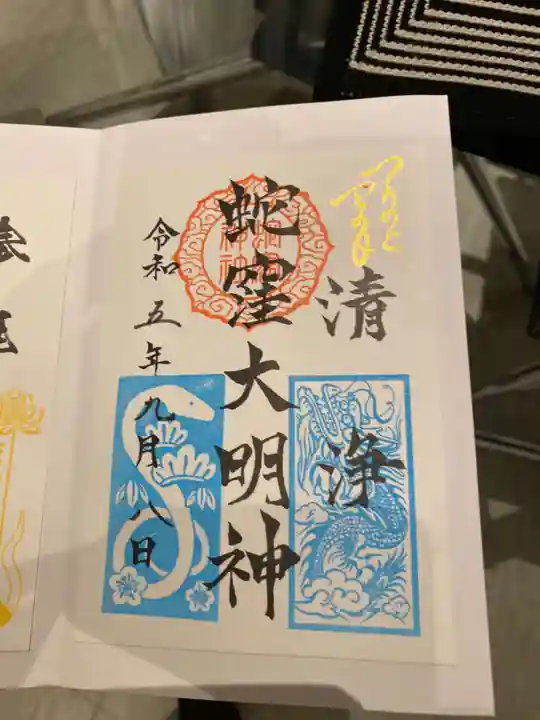 清浄
蛇窪大明神
令和五年九月八日